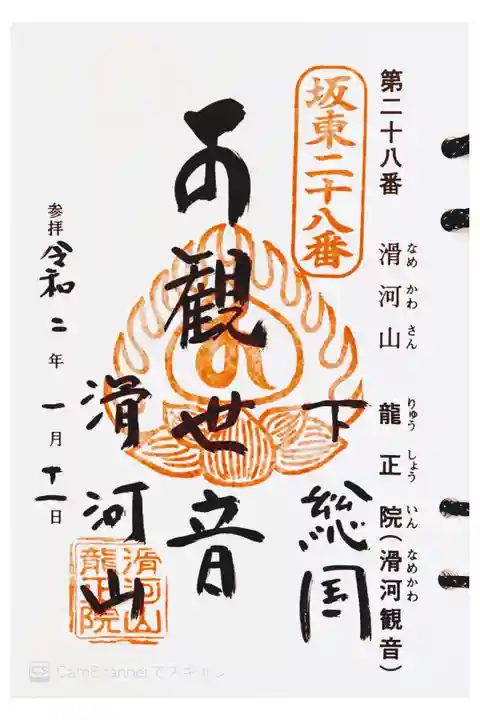 第二十八番 滑河山 龍正院(滑河観音)
なめ かわ さん りゅう しょう いん なめかわ
坂東二十八番
下総国
観世音
滑河山
滑河山
龍正院
参拝 令和二年一月十一日
CS CamScannerでスキャン